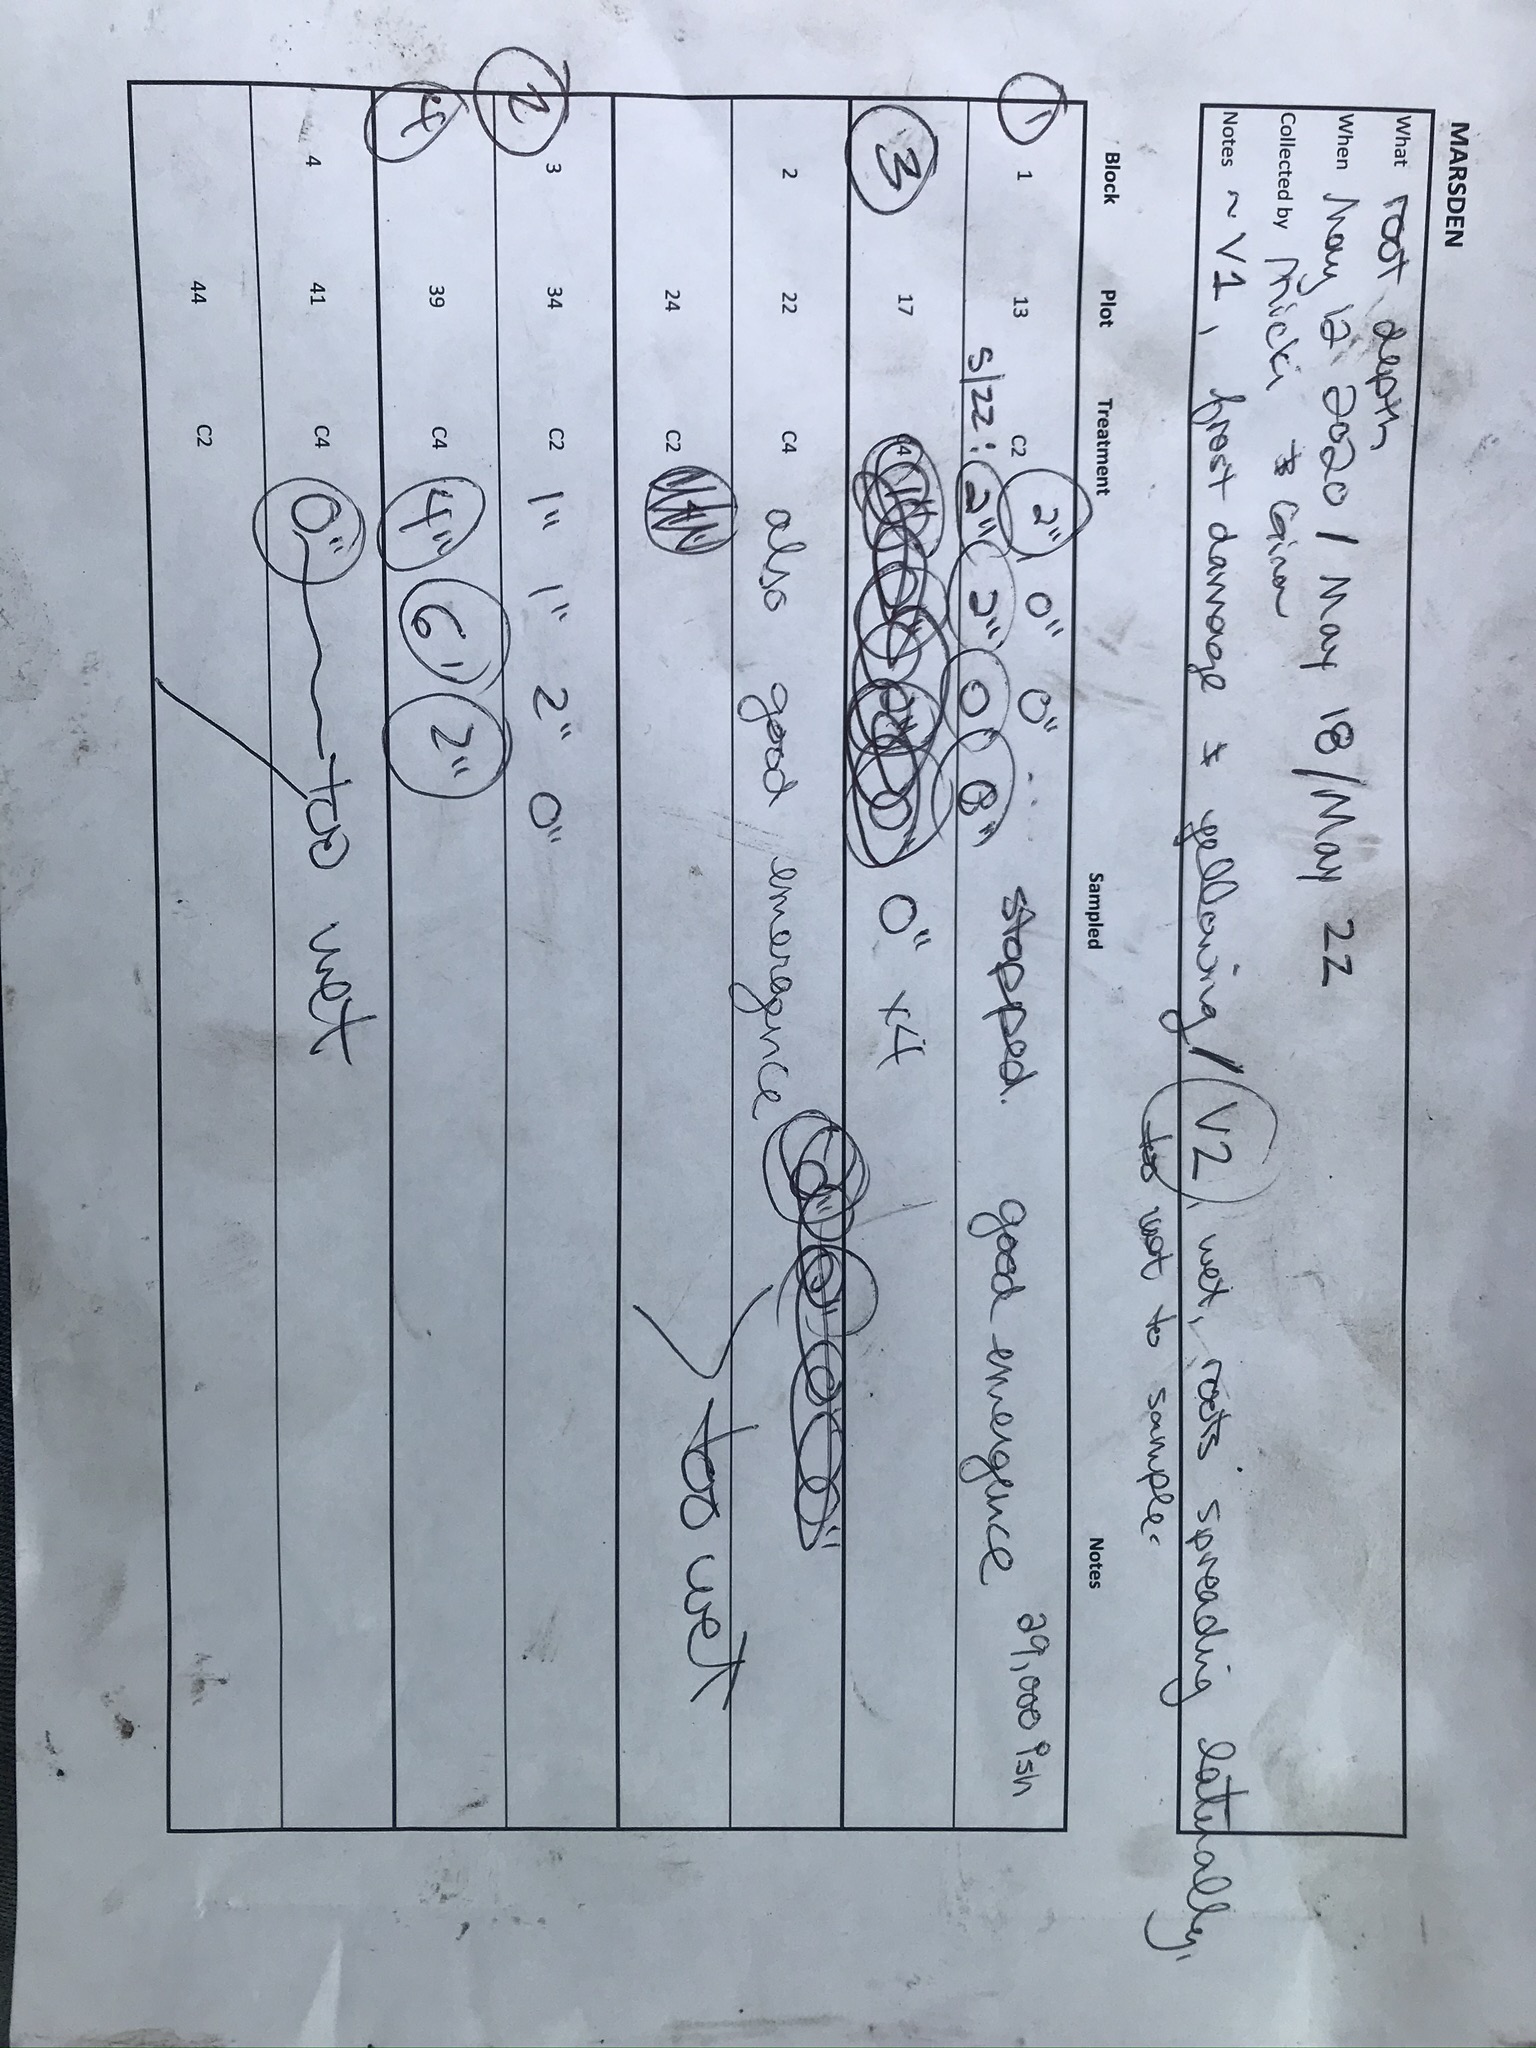 MARSDEN
What root depth
When May 12 2020 / May 18 / May 22
Collected by Micki & Gina
Notes ~ V1, frost damage & yellowing / V2, wet, roots spreading laterally,
too wet to sample.
Block Plot Treatment Sampled Notes
1 1 13 C2 2" 0" 0" .... stopped. good emergence 29,000 ish
5/22: 2" 2" 0" 0"
3 17 C4 0" x4
2 22 C4 also good emergence
24 C2 too wet
2 3 34 C2 1" 1" 2" 0"
4 39 C4 4" 6' 2"
4 41 C4 0" too wet
44 C2